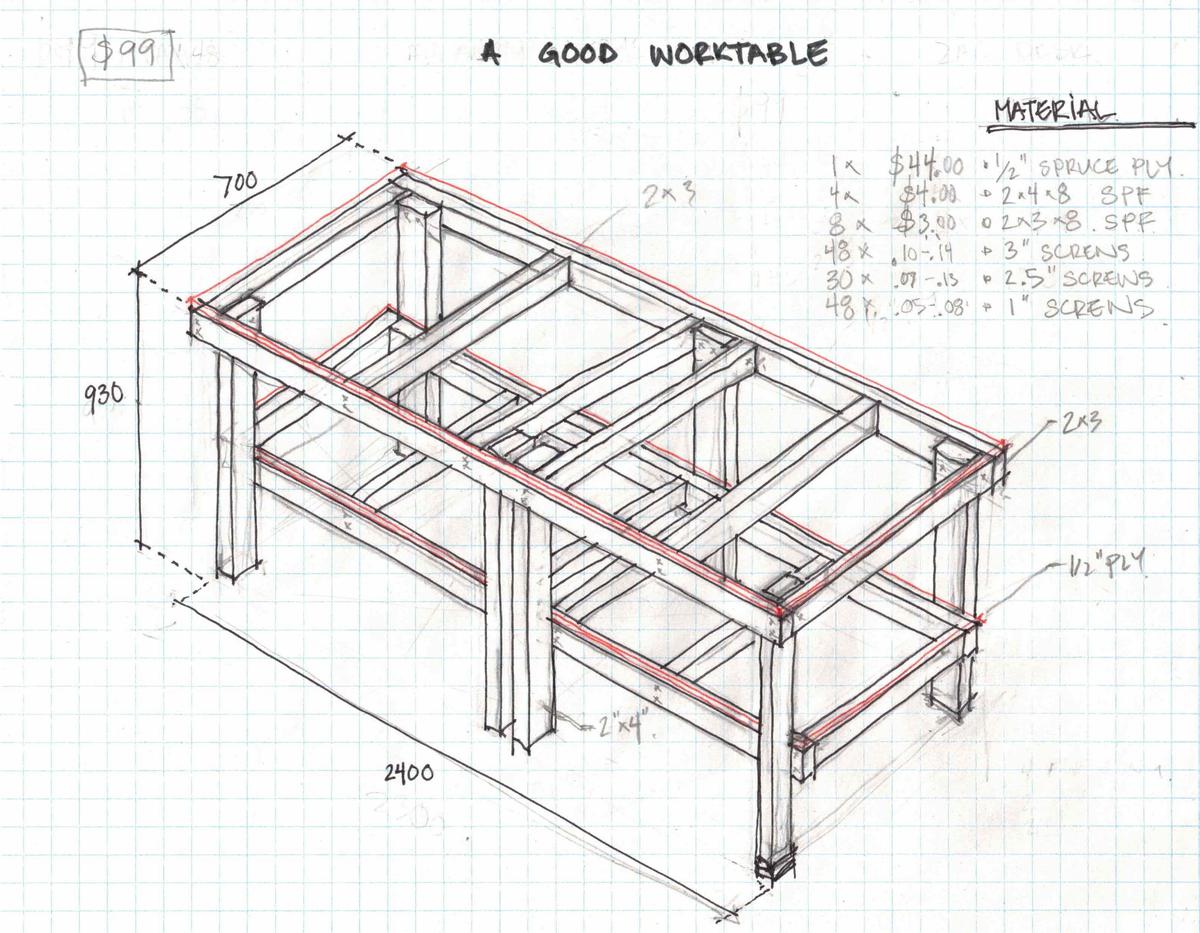 $99
A GOOD WORKTABLE
MATERIAL
1x $44.00 • 1/2" SPRUCE PLY.
4x $4.00 • 2x4x8 SPF
8x $3.00 • 2x3x8. SPF
48x .10-.14 • 3" SCREWS
30x .07-.13 • 2.5" SCREWS
48x .05-.08 • 1" SCREWS
700
2x3
930
2x3
1/2" PLY
2"x4"
2400